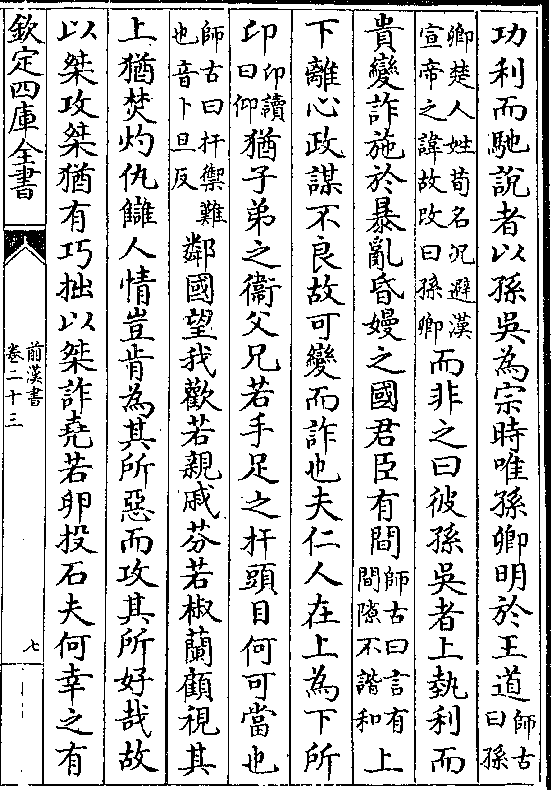 功利而馳說者以孫吳為宗時唯孫卿明於王道師古曰孫
卿楚人姓荀名況避漢宣帝之諱故改曰孫卿而非之曰彼孫吳者上埶利而
貴變詐施於暴亂昏嫚之國君臣有間師古曰言有間隙不諧和上
下離心政謀不良故可變而詐也夫仁人在上為下所
卬卬讀曰仰猶子弟之衞父兄若手足之扞頭目何可當也
師古曰扞禦難也音卜旦反鄰國望我歡若親戚芬若椒蘭顧視其
上猶焚灼仇讎人情豈肯為其所惡而攻其所好哉故
以桀攻桀猶有巧拙以桀詐堯若卵投石夫何幸之有
欽定四庫全書
前漢書
卷二十三
七